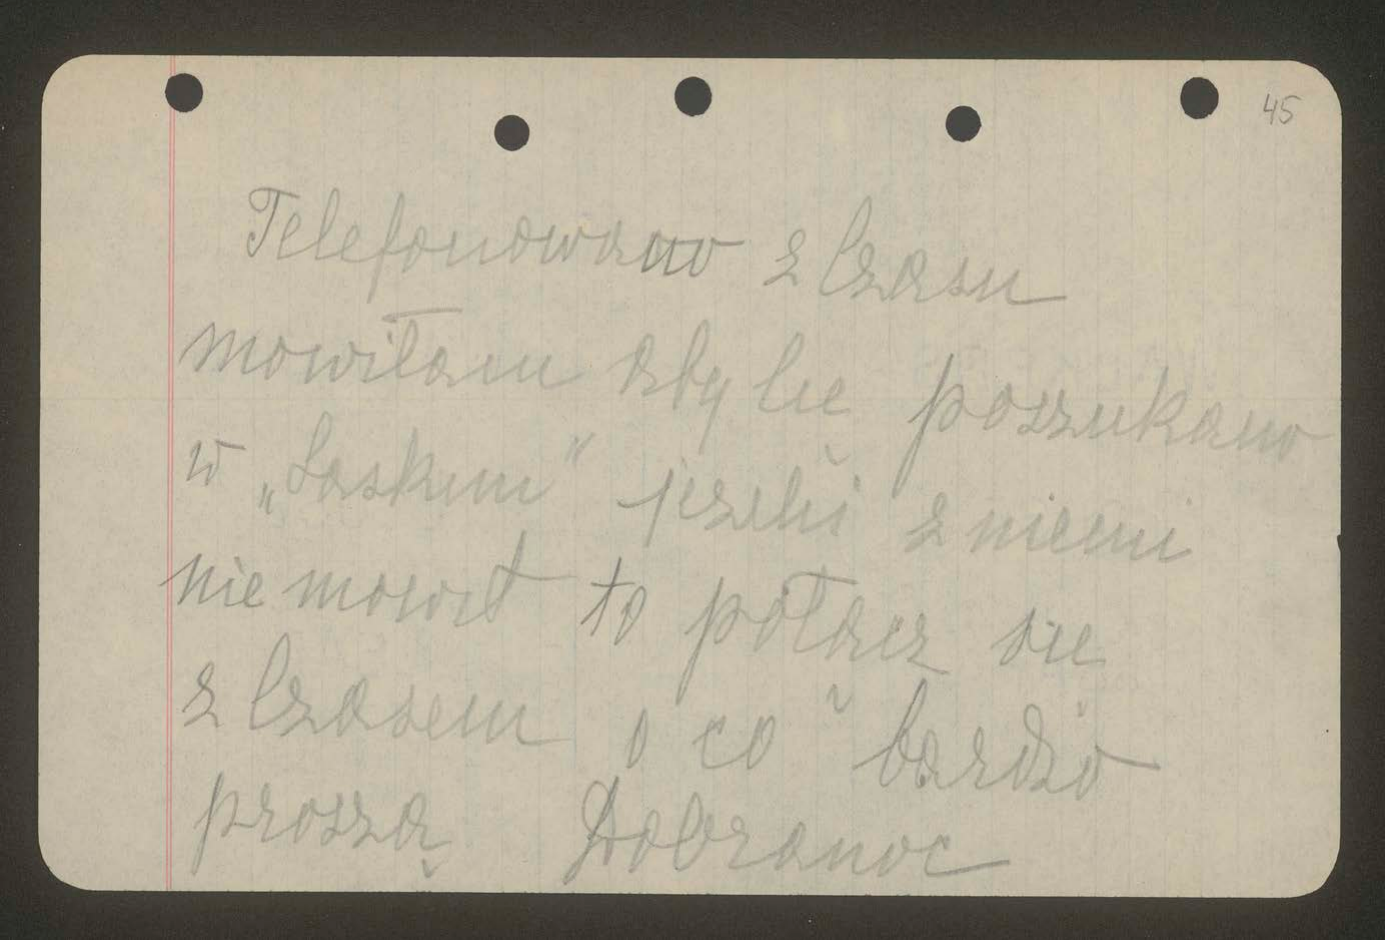 45
Telefonowano z Czasu
mowiłam aby Cie poszukano
w „Laskim” jezeliś z niemi
nie mowił to połacz sie
z Czasem o co bardzo
proszą Dobranoc